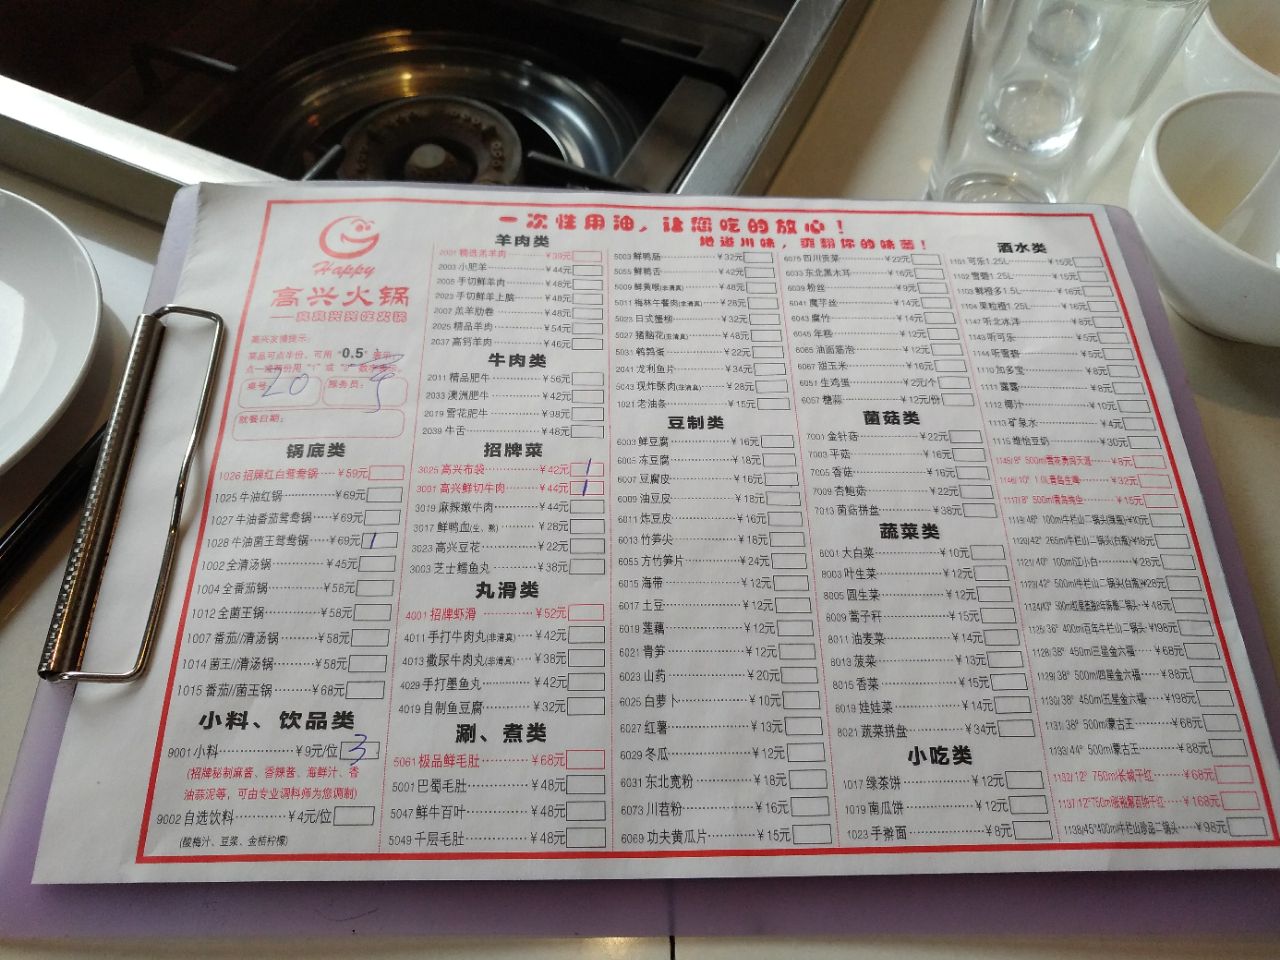 一次性用油，让您吃的放心！
地道川味，爽翻你的味蕾！
Happy
高兴火锅
高兴友情提示：
菜品可点半份，可用"0.5"表示
桌号：
服务员：
就餐日期：
锅底类
1026 招牌红白鸳鸯锅 ¥59元
1025 牛油红锅 ¥69元
1027 牛油番茄鸳鸯锅 ¥69元
1028 牛油菌王鸳鸯锅 ¥69元 1
1002 全清汤锅 ¥45元
1004 全番茄锅 ¥58元
1012 全菌王锅 ¥58元
1007 番茄//清汤锅 ¥58元
1014 菌王//清汤锅 ¥58元
1015 番茄//菌王锅 ¥68元
小料、饮品类
9001 小料 ¥9元/位 3
(招牌秘制麻酱、香辣酱、海鲜汁、香
油蒜泥等，可由专业调料师为您调制)
9002 自选饮料 ¥4元/位
(酸梅汁、豆浆、金桔柠檬)
羊肉类
2001 精选羔羊肉 ¥39元
2003 小肥羊 ¥44元
2005 手切鲜羊肉 ¥48元
2023 手切鲜羊上脑 ¥48元
2007 羔羊肋卷 ¥48元
2025 精品羊肉 ¥54元
2037 高钙羊肉 ¥46元
牛肉类
2011 精品肥牛 ¥56元
2033 澳洲肥牛 ¥42元
2019 雪花肥牛 ¥98元
2039 牛舌 ¥48元
招牌菜
3025 高兴布袋 ¥42元 1
3001 高兴鲜切牛肉 ¥44元 1
3019 麻辣嫩牛肉 ¥44元
3017 鲜鸭血(生、熟) ¥28元
3023 高兴豆花 ¥22元
3003 芝士鳕鱼丸 ¥38元
丸滑类
4001 招牌虾滑 ¥52元
4011 手打牛肉丸(非清真) ¥42元
4013 撒尿牛肉丸(非清真) ¥38元
4029 手打墨鱼丸 ¥42元
4019 自制鱼豆腐 ¥32元
涮、煮类
5061 极品鲜毛肚 ¥68元
5001 巴蜀毛肚 ¥48元
5047 鲜牛百叶 ¥48元
5049 千层毛肚 ¥48元
5003 鲜鸭肠 ¥32元
5055 鲜鸭舌 ¥42元
5009 鲜黄喉(非清真) ¥48元
5011 梅林午餐肉(非清真) ¥28元
5023 日式蟹柳 ¥32元
5027 猪脑花(非清真) ¥48元
5031 鹌鹑蛋 ¥22元
2041 龙利鱼片 ¥34元
5043 现炸酥肉(非清真) ¥28元
1021 老油条 ¥15元
豆制类
6003 鲜豆腐 ¥16元
6005 冻豆腐 ¥18元
6007 豆腐皮 ¥16元
6009 油豆皮 ¥18元
6011 炸豆皮 ¥16元
6013 竹笋尖 ¥18元
6055 方竹笋片 ¥24元
6015 海带 ¥12元
6017 土豆 ¥12元
6019 莲藕 ¥12元
6021 青笋 ¥12元
6023 山药 ¥20元
6025 白萝卜 ¥10元
6027 红薯 ¥13元
6029 冬瓜 ¥12元
6031 东北宽粉 ¥18元
6073 川苕粉 ¥16元
6069 功夫黄瓜片 ¥15元
6075 四川贡菜 ¥22元
6033 东北黑木耳 ¥16元
6039 粉丝 ¥9元
6041 魔芋丝 ¥14元
6043 腐竹 ¥14元
6045 年糕 ¥12元
6065 油面筋泡 ¥12元
6067 甜玉米 ¥16元
6051 生鸡蛋 ¥2元/个
6057 糖蒜 ¥12元/份
菌菇类
7001 金针菇 ¥22元
7003 平菇 ¥16元
7005 香菇 ¥16元
7009 杏鲍菇 ¥22元
7013 菌菇拼盘 ¥38元
蔬菜类
8001 大白菜 ¥10元
8003 叶生菜 ¥12元
8005 圆生菜 ¥12元
8009 蒿子秆 ¥15元
8011 油麦菜 ¥14元
8013 菠菜 ¥13元
8015 香菜 ¥15元
8019 娃娃菜 ¥14元
8021 蔬菜拼盘 ¥34元
小吃类
1017 绿茶饼 ¥12元
1019 南瓜饼 ¥12元
1023 手擀面 ¥8元
酒水类
1101 可乐1.25L ¥15元
1102 雪碧1.25L ¥15元
1103 鲜橙多1.5L ¥16元
1104 果粒橙1.25L ¥16元
1147 听北冰洋 ¥8元
1143 听可乐 ¥5元
1144 听雪碧 ¥5元
1110 加多宝 ¥8元
1111 露露 ¥8元
1112 椰汁 ¥10元
1113 矿泉水 ¥4元
1115 维怡豆奶 ¥30元
1145/8° 500ml雪花勇闯天涯 ¥8元
1146/10° 1.0L青岛生啤 ¥32元
1117/8° 500ml青岛纯生 ¥15元
1121/40° 100ml江小白 ¥28元
1128/38° 450ml三星金六福 ¥68元
1129/38° 500ml四星金六福 ¥88元
1130/38° 450ml五星金六福 ¥198元
1131/38° 500ml蒙古王 ¥68元
1133/44° 500ml蒙古王 ¥88元
1132/12° 750ml长城干红 ¥68元